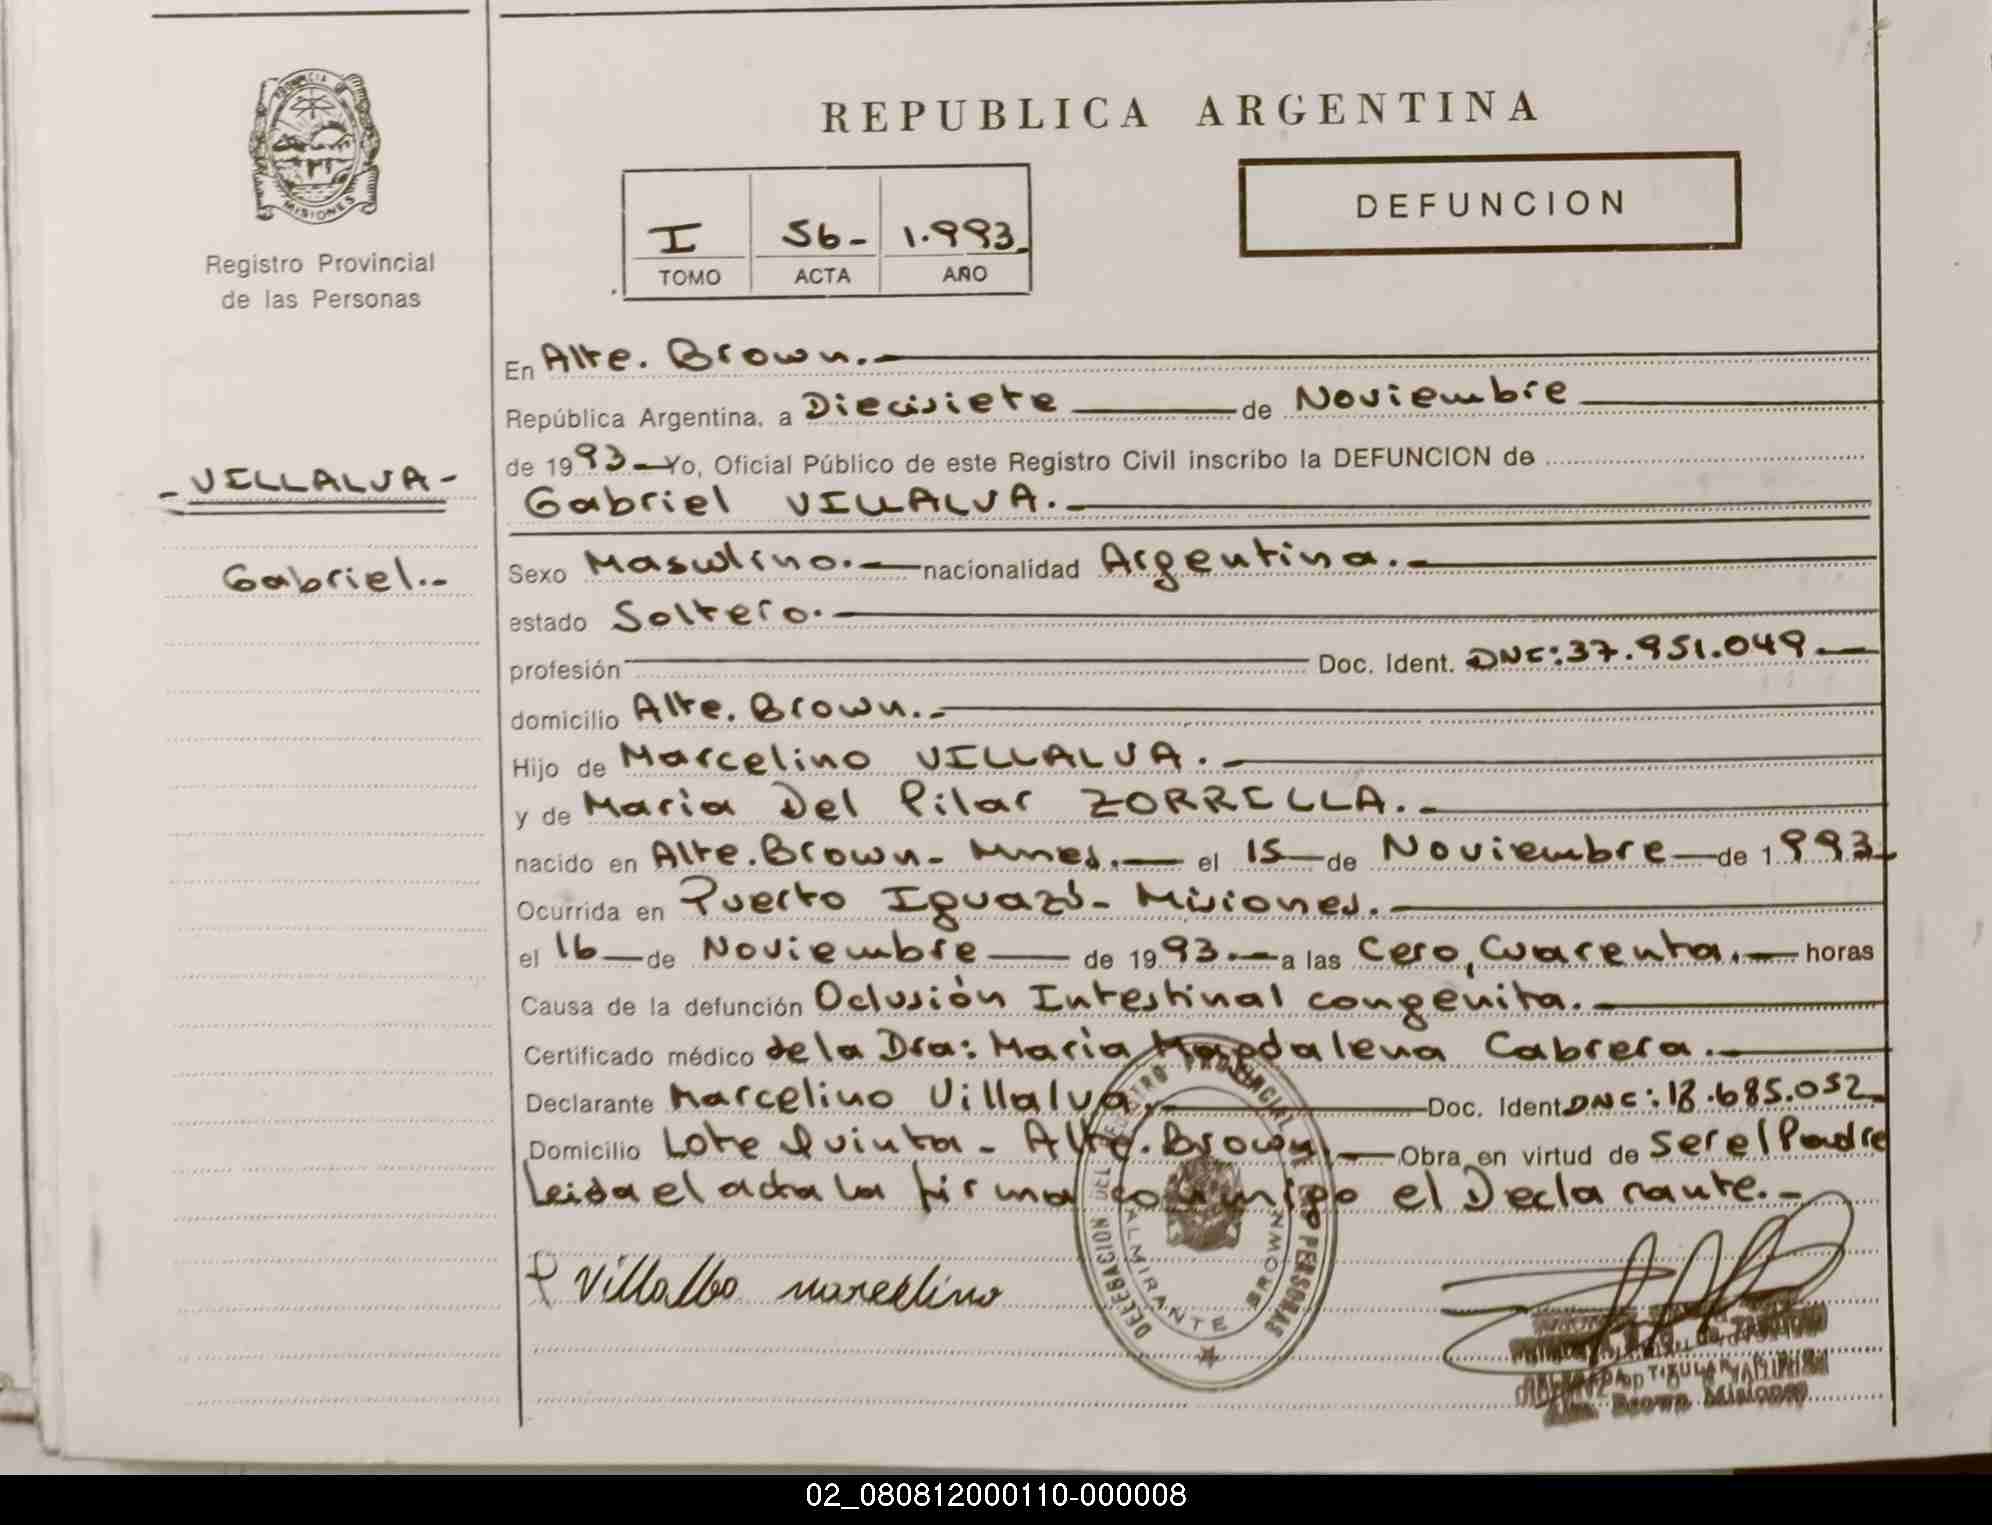 PROVINCIA DE
MISIONES
Registro Provincial
de las Personas
VILLALVA-
Gabriel.-
REPUBLICA ARGENTINA
I 56- 1.993
TOMO ACTA AÑO
DEFUNCION
En Alte. Brown.
República Argentina, a Diecisiete de Noviembre
de 1993 Yo, Oficial Público de este Registro Civil inscribo la DEFUNCION de
Gabriel VILLALVA.
Sexo Masculino. nacionalidad Argentina.
estado Soltero.
profesión Doc. Ident. DNE: 37.951.049
domicilio Alte. Brown.
Hijo de Marcelino VILLALVA.
y de Maria Del Pilar ZORRELLA.
nacido en Alte. Brown- Mnes. el 15 de Noviembre de 1993
Ocurrida en Puerto Iguazú- Misiones.
el 16 de Noviembre de 1993. a las Cero, Cuarenta. horas
Causa de la defunción Oclusión Intestinal congénita.
Certificado médico de la Dra: Maria Magdalena Cabrera.
Declarante Marcelino Villalva. Doc. Ident DNE: 18.685.052
Domicilio Lote Quinta - Alte. Brown. Obra en virtud de Ser el Padre
Leida el acta la firma conmigo el Declarante.-
Villalba marcelino
DELEGACION DEL REGISTRO PROVINCIAL DE LAS PERSONAS
ALMIRANTE BROWN
TITULAR
Alte. Brown Misiones
02_080812000110-000008